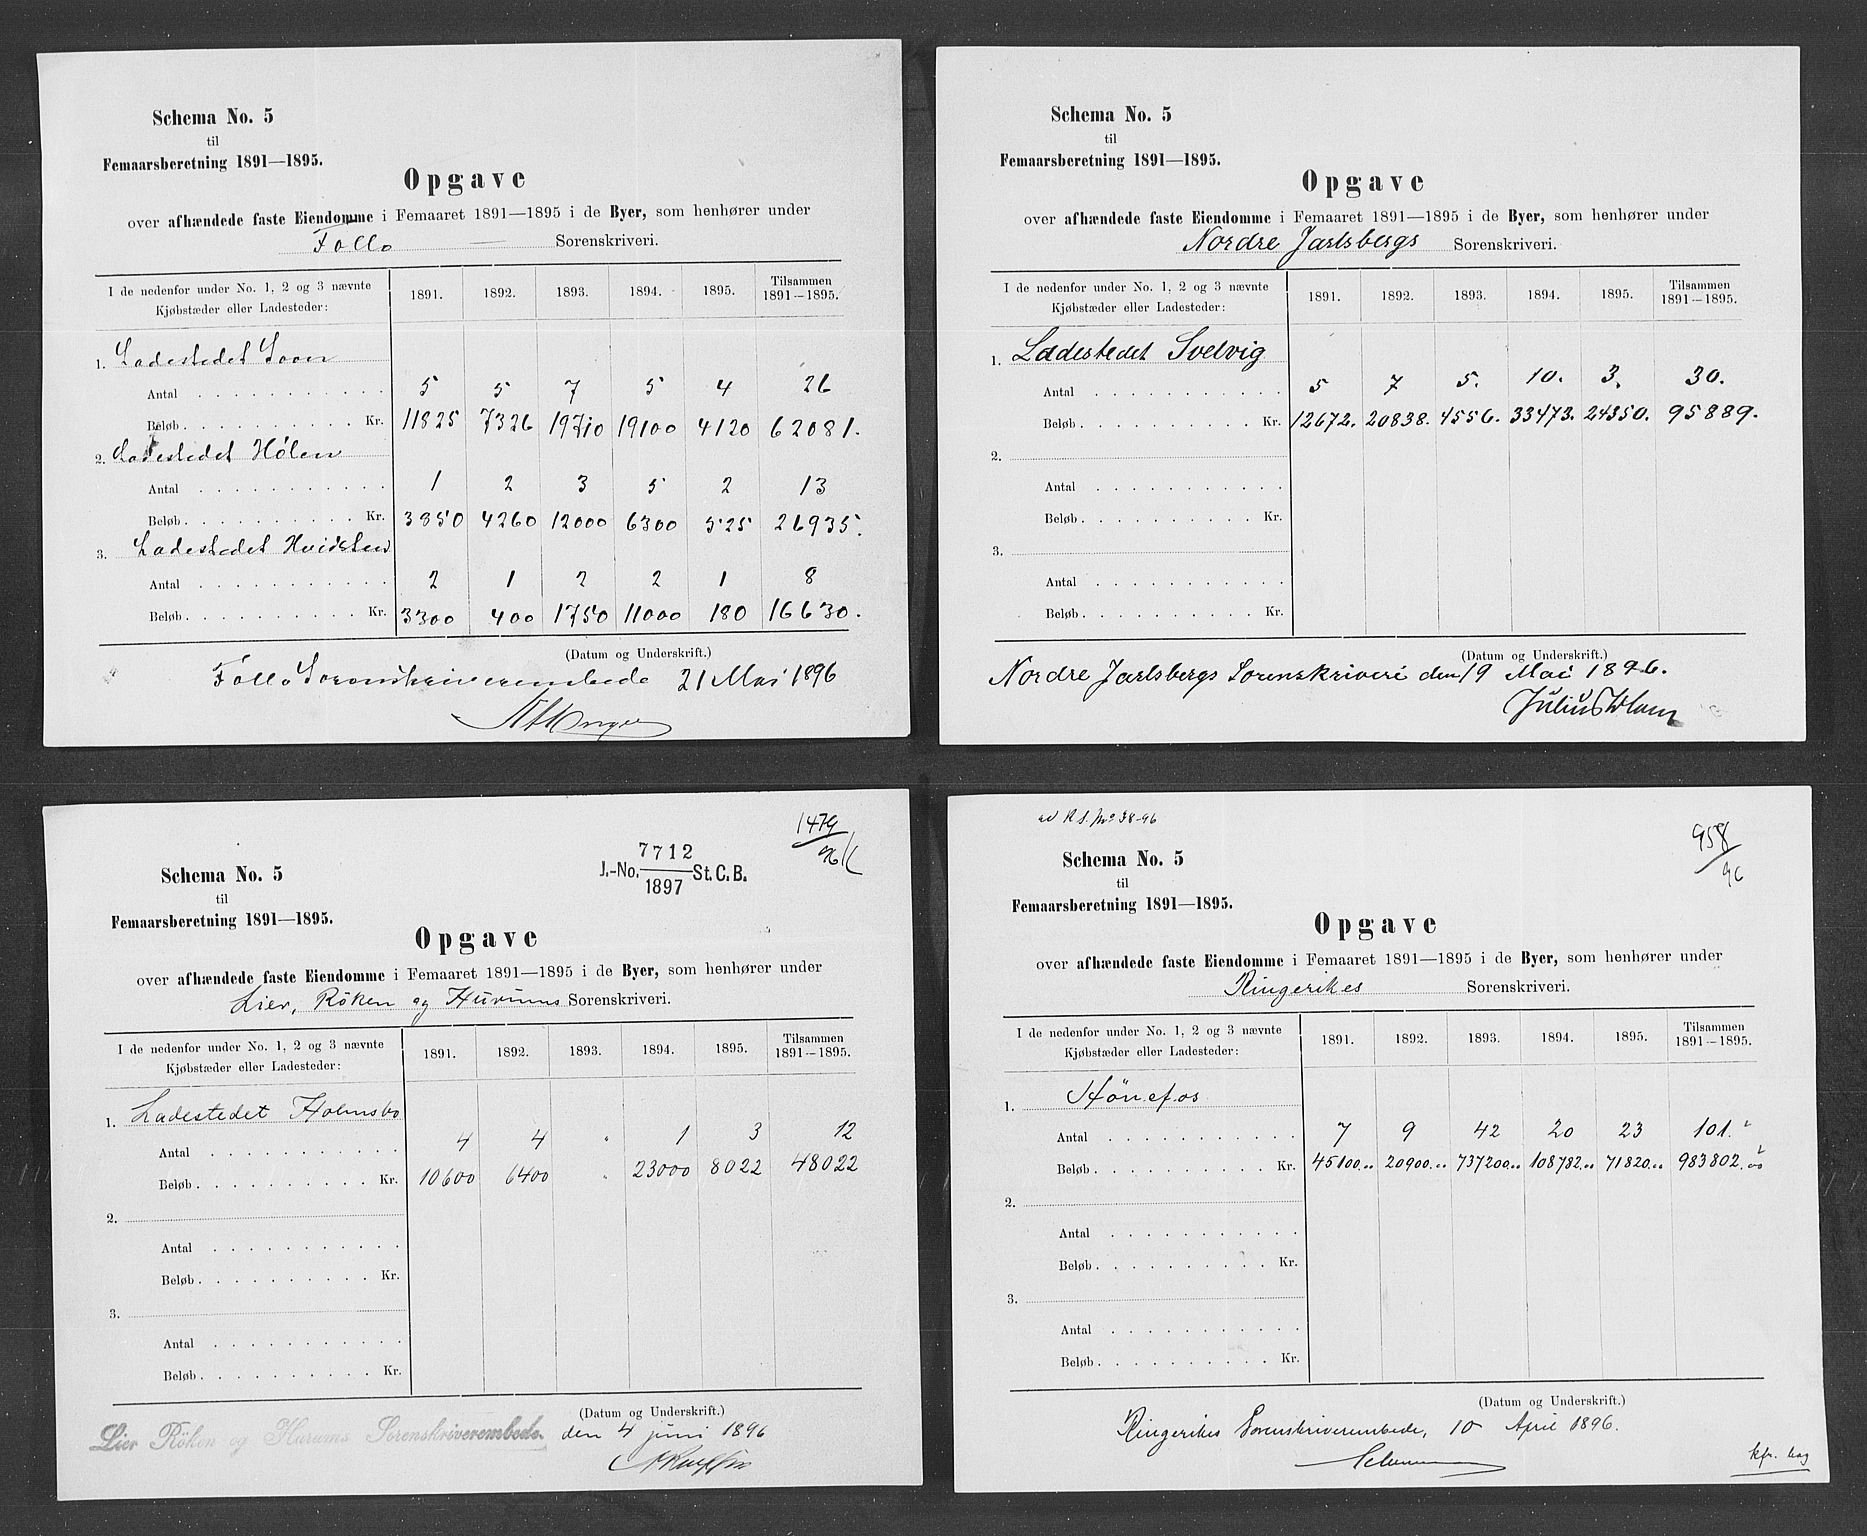 Schema No. 5
til
Femaarsberetning 1891—1895.
Opgave
over afhændede faste Eiendomme i Femaaret 1891—1895 i de Byer, som henhører under
Follo — Sorenskriveri.
I de nedenfor under No. 1, 2 og 3 nævnte Kjøbstæder eller Ladesteder: 1891. 1892. 1893. 1894. 1895. Tilsammen 1891—1895.
1. Ladestedet Soon
Antal 5 5 7 5 4 26
Beløb Kr. 11825 7326 19710 19100 4120 62081.
2. Ladestedet Hölen
Antal 1 2 3 5 2 13
Beløb Kr. 3850 4260 12000 6300 525 26935.
3. Ladestedet Hvidsten
Antal 2 1 2 2 1 8
Beløb Kr. 3300 400 1750 11000 180 16630.
(Datum og Underskrift.)
Follo Sorenskriverembede 21 Mai 1896
Schema No. 5
til
Femaarsberetning 1891—1895.
Opgave
over afhændede faste Eiendomme i Femaaret 1891—1895 i de Byer, som henhører under
Nordre Jarlsbergs Sorenskriveri.
I de nedenfor under No. 1, 2 og 3 nævnte Kjøbstæder eller Ladesteder: 1891. 1892. 1893. 1894. 1895. Tilsammen 1891—1895.
1. Ladestedet Svelvig
Antal 5 7 5. 10. 3. 30.
Beløb Kr. 12672. 20838. 4556. 33473. 24350. 95889.
2.
Antal
Beløb Kr.
3.
Antal
Beløb Kr.
(Datum og Underskrift.)
Nordre Jarlsbergs Sorenskriveri den 19 Mai 1896.
Julius
1479
96
J.-No. 7712 St. C. B.
1897
Schema No. 5
til
Femaarsberetning 1891—1895.
Opgave
over afhændede faste Eiendomme i Femaaret 1891—1895 i de Byer, som henhører under
Lier, Röken og Hurums Sorenskriveri.
I de nedenfor under No. 1, 2 og 3 nævnte Kjøbstæder eller Ladesteder: 1891. 1892. 1893. 1894. 1895. Tilsammen 1891—1895.
1. Ladestedet Holmsbo
Antal 4 4 " 1 3 12
Beløb Kr. 10600 6400 " 23000 8022 48022
2.
Antal
Beløb Kr.
3.
Antal
Beløb Kr.
(Datum og Underskrift.)
Lier Röken og Hurums Sorenskriverembede. den 4 juni 1896
958
96
Schema No. 5
til
Femaarsberetning 1891—1895.
Opgave
over afhændede faste Eiendomme i Femaaret 1891—1895 i de Byer, som henhører under
Ringerikes Sorenskriveri.
I de nedenfor under No. 1, 2 og 3 nævnte Kjøbstæder eller Ladesteder: 1891. 1892. 1893. 1894. 1895. Tilsammen 1891—1895.
1. Hönefos
Antal 7 9 42 20 23 101.
Beløb Kr. 45100.00 20900.00 737200.00 108782.00 71820.00 983802.00
2.
Antal
Beløb Kr.
3.
Antal
Beløb Kr.
(Datum og Underskrift.)
Ringerikes Sorenskriverembede, 10 April 1896.
kfr. bag